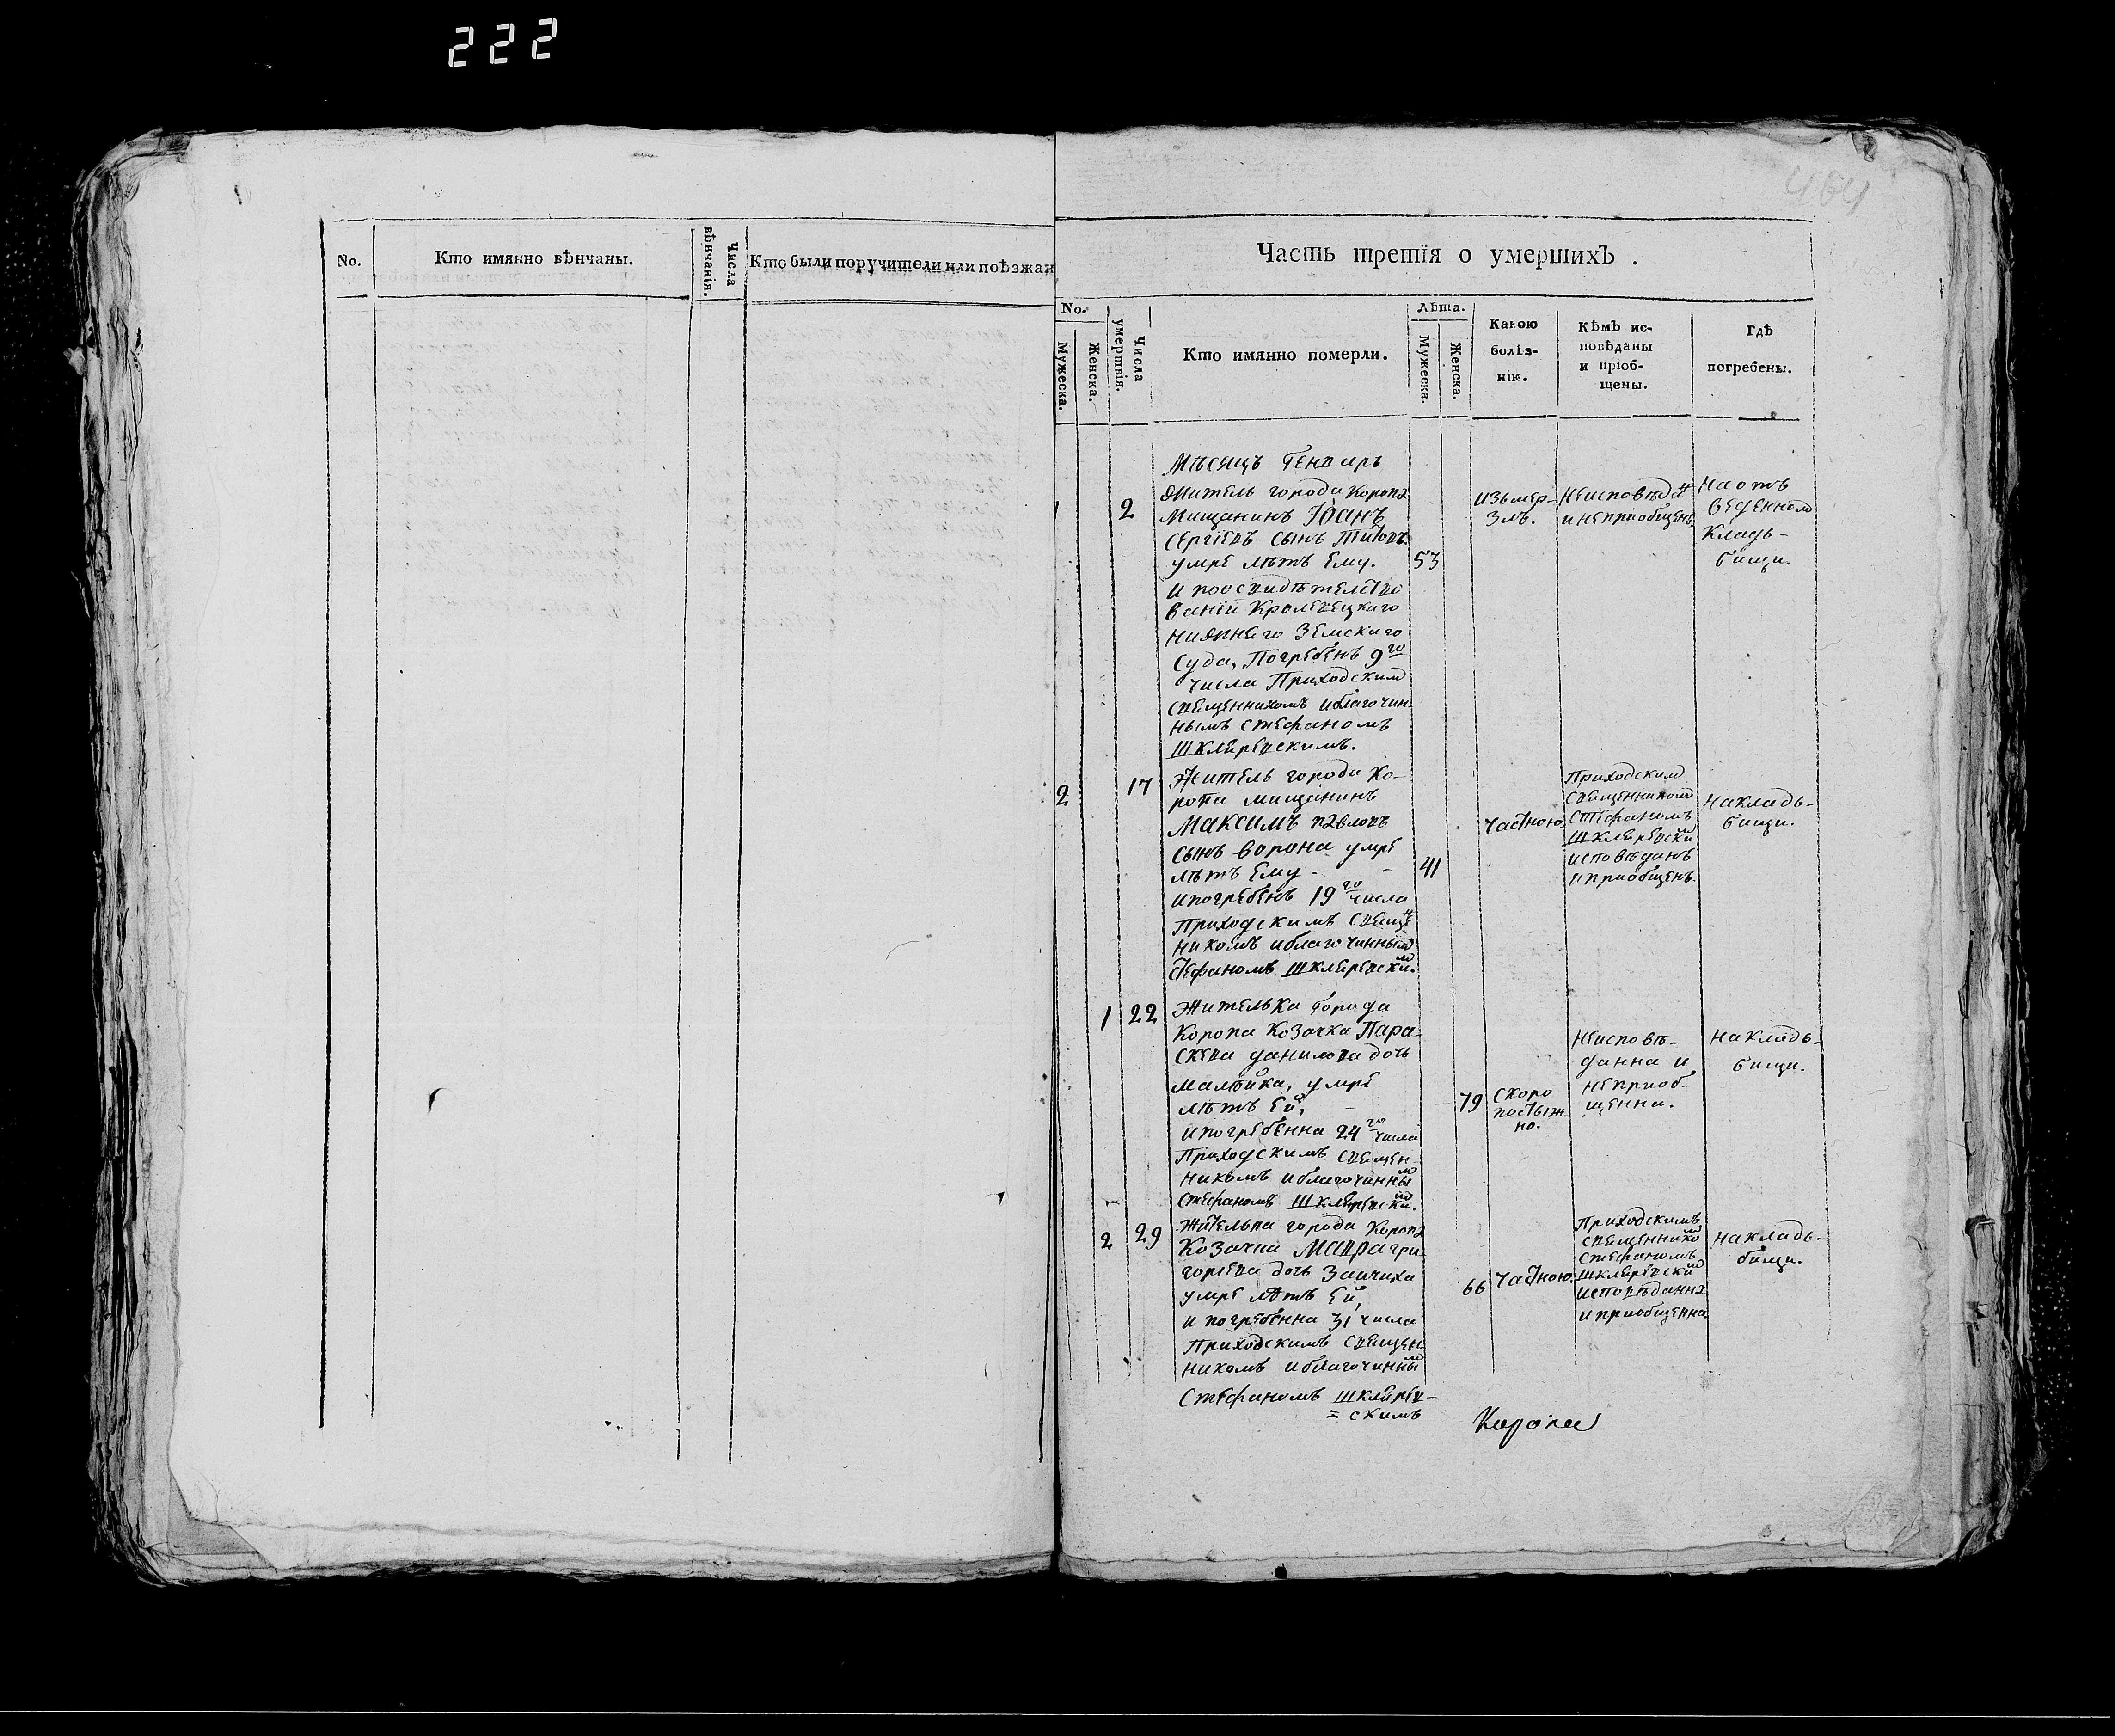 222
464
No.
Кто имянно вѣнчаны.
Числа вѣнчанія.
Кто были поручители или поѣзжан
Часть третїя о умершихъ .
No.
Мужеска.
Женска.
Числа умертвія.
Кто имянно померли.
Лѣта.
Мужеска.
Женска.
Какою
болѣз-
нію.
Кѣмъ ис-
повѣданы
и пріоб-
щены.
Гдѣ
погребены.
Мѣсяцъ Генваръ
1
2
Житель города Коропа
Мищанинъ Іоанъ
Сергіевъ сынъ Титовъ
умре лѣтъ ему.
53
и поосвидѣтелство
ваніи Кролевецкаго
нижнего Земскаго
Суда, Погребенъ 9го
числа Приходским
священникомъ и благочин
нымъ Стефаномъ
Шкляревскимъ.
изьмер-
злъ.
Неисповѣдан
и неприобщенъ
На отъ
веденном
кладъ-
бищи.
2
17
Житель города Ко-
ропа мищанинъ
Максимъ Павловъ
сынъ Ворона умре
лѣтъ ему -
41
и погребенъ 19го числа
Приходскимъ Свяще
никомъ и благочинным
Стефаномъ Шкляревским.
Частною
Приходским
Священником
Стефаномъ
Шкляревским
исповѣданъ
и приобщенъ.
на кладъ-
бищи.
1
22
Жителька города
Коропа Козачка Пара-
скева Данилова дочь
Малѣйка, умре
лѣтъ ей, -
79
и погребенна 24го числа
Приходскимъ Священ-
никомъ и благочинным
Стефаномъ Шкляревским.
скоро
постыж-
но.
Неисповѣ-
данна и
неприоб-
щенна.
на кладъ-
бищи.
2
29
Жителька города Коропа
Козачка Мавра Гри
горіева дочь Заичиха
умре лѣтъ ей,
66
и погребенна 31 числа
Приходскимъ Священ
никомъ и благочинным
Стефаномъ Шклярев-
= скимъ
Частною.
Приходскимъ
священником
Стефаномъ
Шкляревским
исповѣданна
и приобщенна
на кладъ-
бищи.